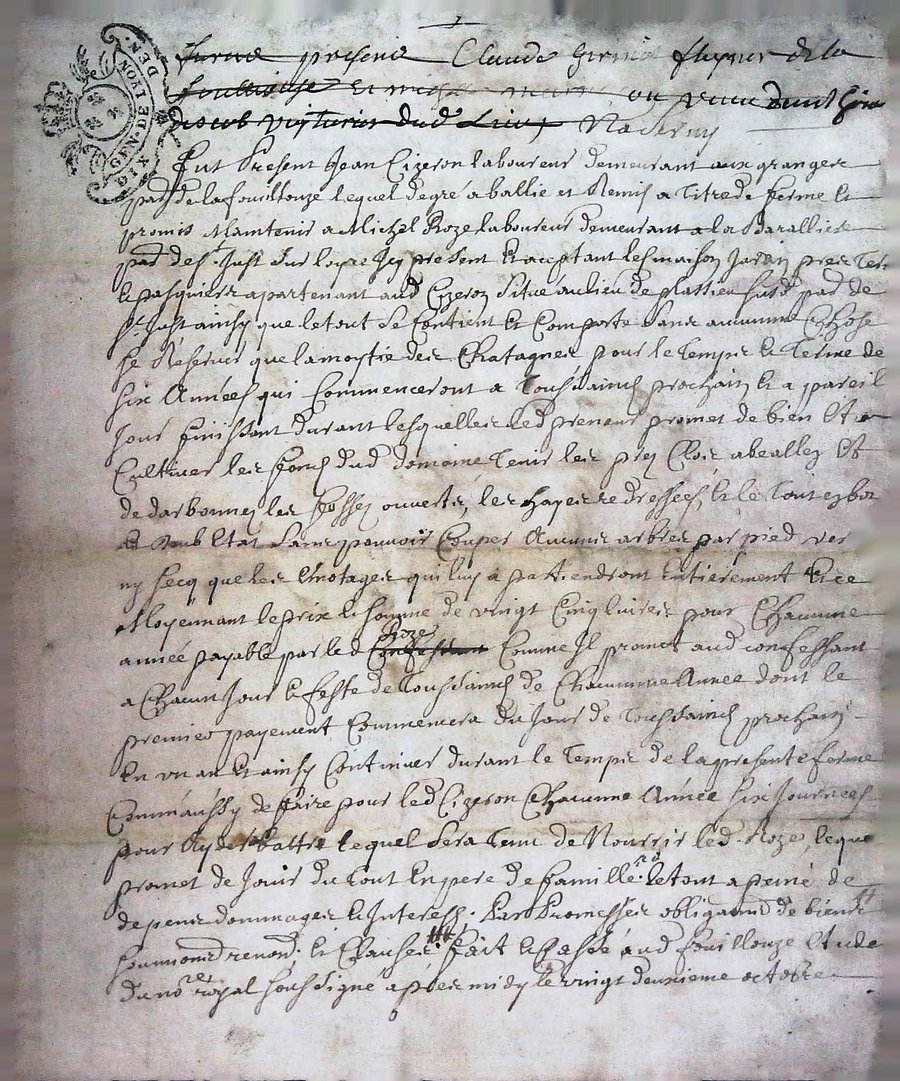 GEN. DE LYON
DIX DEN.
furent presents Claude
et
voiturier dud. lieu
Fut Present Jean Cizeron laboureur demeurant aux granges
par. de la fouillouze lequel de gré a ballié et Remis a Titre de ferme et
promis Maintenir a Michel Roze laboureur demeurant a la Baralliere
par. de St. Just sur loyre Icy present et acceptant les maison Jardin prez Terre
et pasquiers apartenant aud. Cizeron situé au lieu de plassieu susd. par. de
St. Just ainsy que le tout se Contient et Comporte sans aucunne Chose
se Reserver que la moytié des Chatagnes pour le Temps et Terme de
six Années qui Commenceront a Toussaincts prochain et a pareil
Jour finissant durant lesquelles led. preneur promet de bien et
Cultiver les fonds dud. domaine Tenir les prez Clos abeallez et
desdarbonnez les fossez ouverts, les hayes redressees, et le Tout en bon
et deub Etat sans pouvoir Couper Aucuns arbres par pied ver
ny secq que les Emotages qui luy apartiendront Entierement et ce
Moyennant le prix et somme de vingt Cinq livres pour Chacunne
année payable par led. Roze Comme Il promet aud. confessant
a Chacun Jour et feste de Toussaincts de Chacunne Année dont le
premier payement Commencera du Jour de Toussaincts prochain
En un an et ainsy Continuer durant le Temps de la presente ferme
Comm'aussy de faire pour led. Cizeron Chacunne Année six Journees
pour Ayder a battre lequel sera Tenu de Nourrir led. Roze, leque
promet de Jouir du tout En pere de famille. le tout a peine de
depens dommages et Interests. Par Promesses obligaons de biens
soumions renons et Clauses fait et passé aud. fouillouze Etude
du nore royal soussigné apres midy le vingt deuxieme octobre